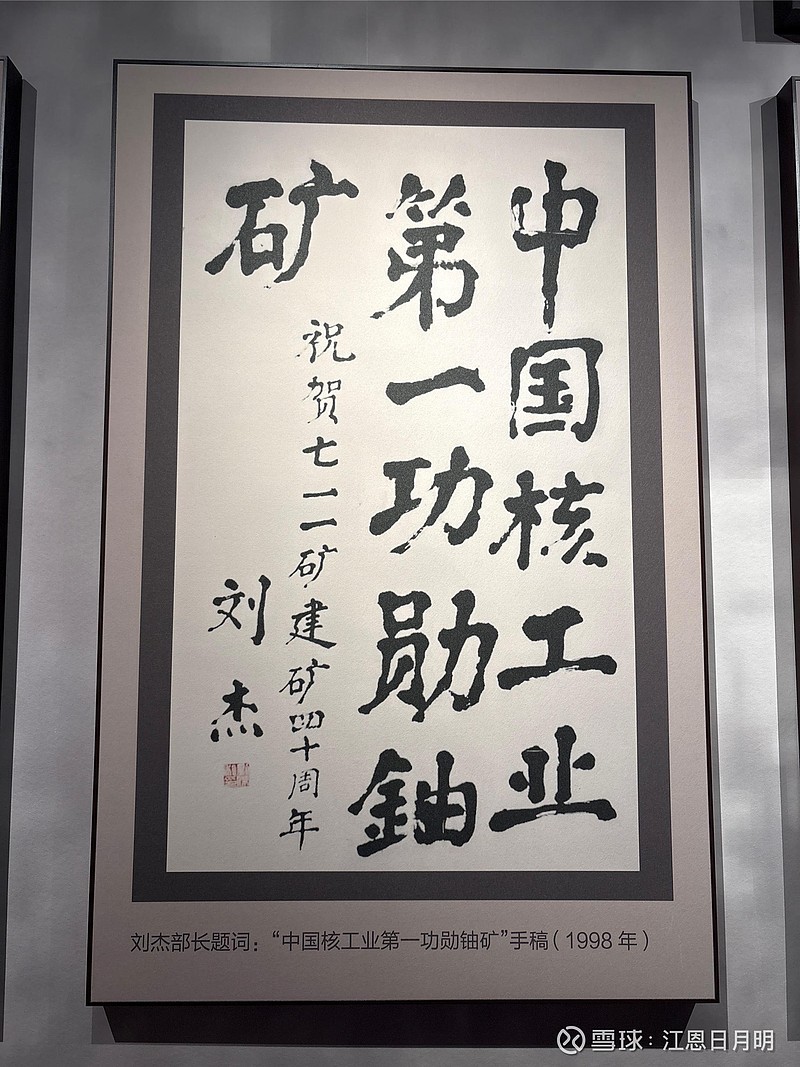 中国核工业
第一功勋铀
矿
祝贺七一一矿建矿四十周年
刘杰
刘杰部长题词：“中国核工业第一功勋铀矿”手稿（1998 年）
雪球：江恩日月明